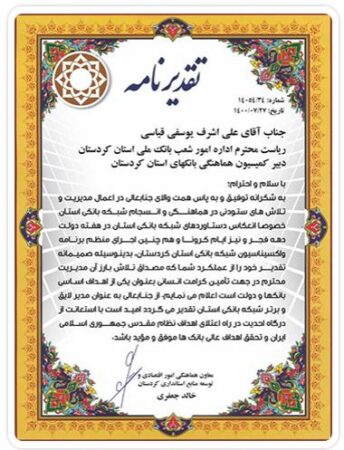 تقدیرنامه
شماره: ۱۴۰۵۴/۳۴
تاریخ: ۱۴۰۰/۰۷/۲۷
جناب آقای علی اشرف یوسفی قیاسی
ریاست محترم اداره امور شعب بانک ملی استان کردستان
دبیر کمیسیون هماهنگی بانکهای استان کردستان
با سلام و احترام؛
به شکرانه توفیق و به پاس همت والای جنابعالی در اعمال مدیریت و
تلاش های ستودنی در هماهنگی و انسجام شبکه بانکی استان
خصوصا انعکاس دستاوردهای شبکه بانکی استان در هفته دولت
دهه فجر و نیز ایام کرونا و هم چنین اجرای منظم برنامه
واکسیناسیون شبکه بانکی استان کردستان، بدینوسیله صمیمانه
تقدیر خود را از عملکرد شما که مصداق تلاش بارز آن مدیریت
محترم در جهت تأمین کرامت انسانی بعنوان یکی از اهداف اساسی
بانکها و دولت است اعلام می نمایم. از جنابعالی به عنوان مدیر لایق
و برتر شبکه بانکی استان تقدیر می گردد امید است با استعانت از
درگاه احدیت در راه اعتلای اهداف نظام مقدس جمهوری اسلامی
ایران و تحقق اهداف عالی بانک ها موفق و مؤید باشد.
معاون هماهنگی امور اقتصادی و
توسعه منابع استانداری کردستان
خالد جعفری